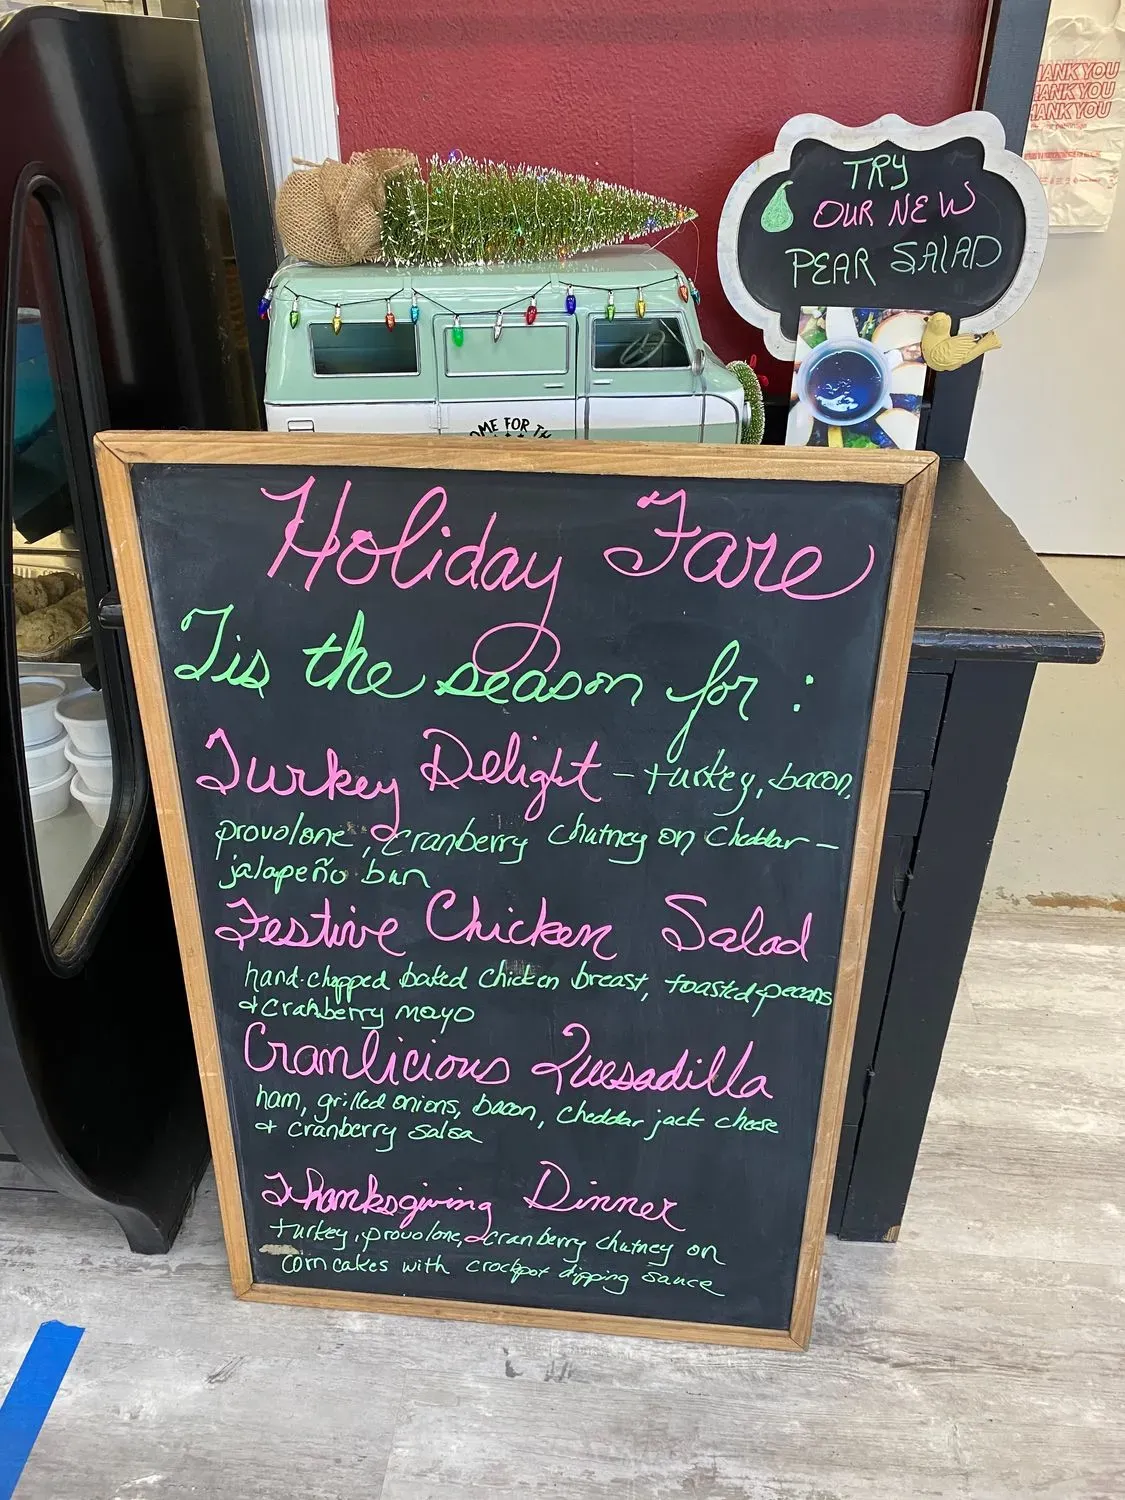 HANK YOU
HANK YOU
HANK YOU
TRY
OUR NEW
PEAR SALAD
OME FOR TH
Holiday Fare
Tis the season for :
Turkey Delight - turkey, bacon,
provolone, & cranberry chutney on cheddar -
jalapeño bun
Festive Chicken Salad
hand-chopped baked chicken breast, toasted pecans
& cranberry mayo
Cranlicious Quesadilla
ham, grilled onions, bacon, cheddar jack cheese
& cranberry salsa
Thanksgiving Dinner
turkey, provolone, & cranberry chutney on
corn cakes with crockpot dipping sauce